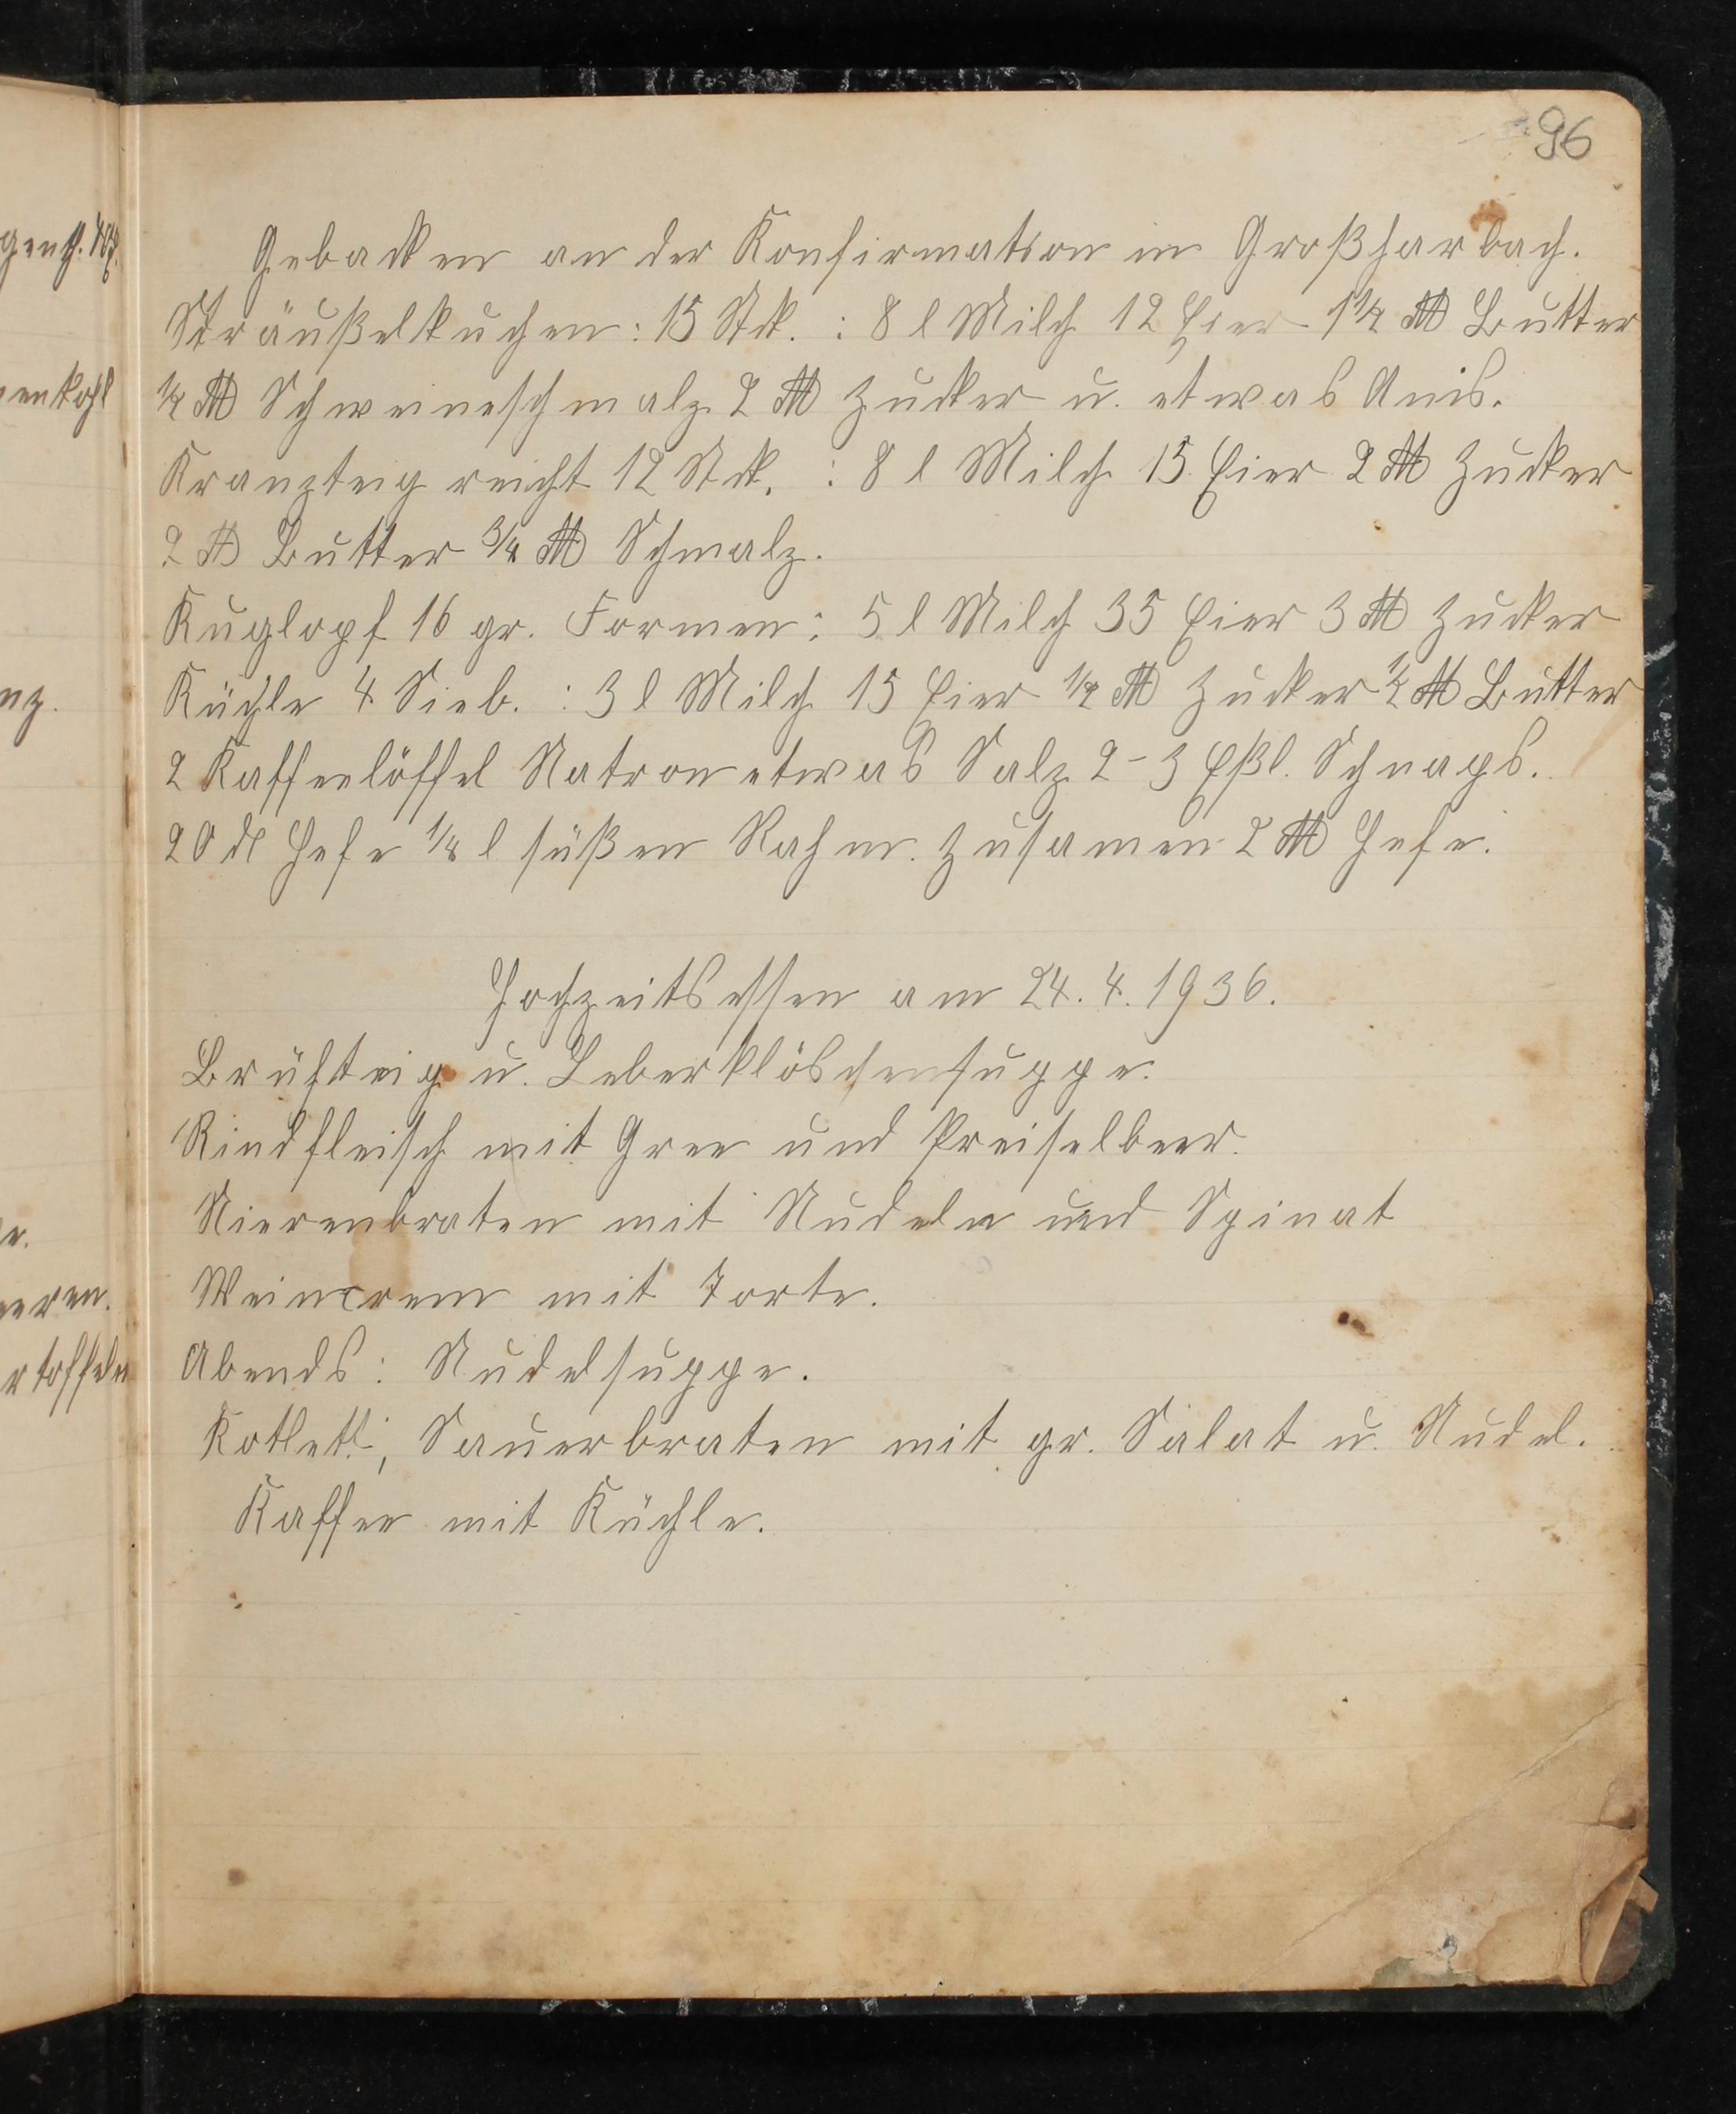 96
Gebacken an der Konfirmation in Großharbach.
Sträußelkuchen: 15 Stck. : 8 l Milch 12 Eier 1½ ℔ Butter
½ ℔ Schweineschmalz 2 ℔ Zucker u. etwas Anis.
Kranzteig reicht 12 Stck. : 8 l Milch 15 Eier 2 ℔ Zucker
2 ℔ Butter ¾ ℔ Schmalz.
Kuglopf 16 gr. Formen: 5 l Milch 35 Eier 3 ℔ Zucker
Küchle 4 Sieb. : 3 l Milch 15 Eier ½ ℔ Zucker ½ ℔ Butter
2 Kaffeelöffel Natron etwas Salz 2-3 Eßl. Schnaps.
20 ₰ Hefe ¼ l süßen Rahm. Zusamen 2 ℔ Hefe.
Hochzeitsessen am 24. 4. 1936.
Brühteig u. Leberklöschensuppe.
Rindfleisch mit Gree und Preiselbeer.
Nierenbraten mit Nudeln und Spinat
Weincrem mit Torte.
Abends: Nudelsuppe.
Kotlett, Sauerbraten mit gr. Salat u. Nudel.
Kaffee mit Küchle.